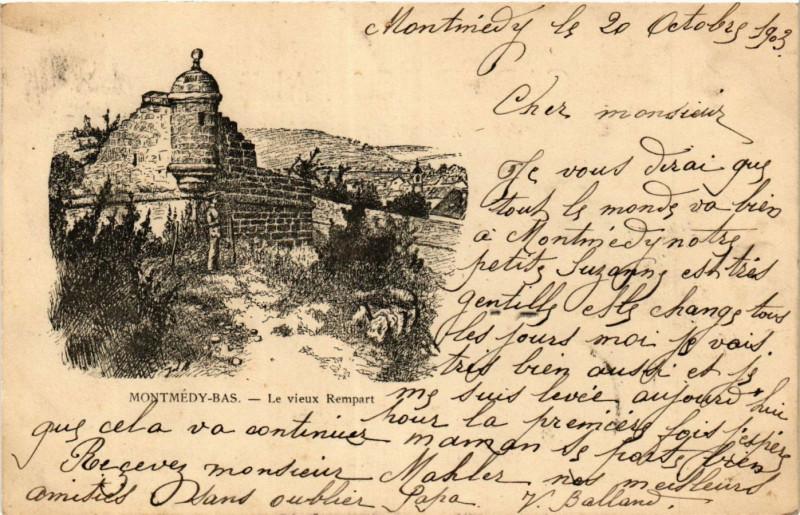 Montmédy le 20 Octobre 1903
Cher monsieur
Je vous dirai que
tout le monde va bien
à Montmédy notre
petite Suzanne est très
gentille elle change tous
les jours moi je vais
très bien aussi et je
me suis levée aujourd'hui
pour la première fois j'espère
que cela va continuer maman se porte bien
Recevez monsieur Mahler nos meilleurs
amitiés sans oublier Papa. V. Balland.
MONTMÉDY-BAS. — Le vieux Rempart